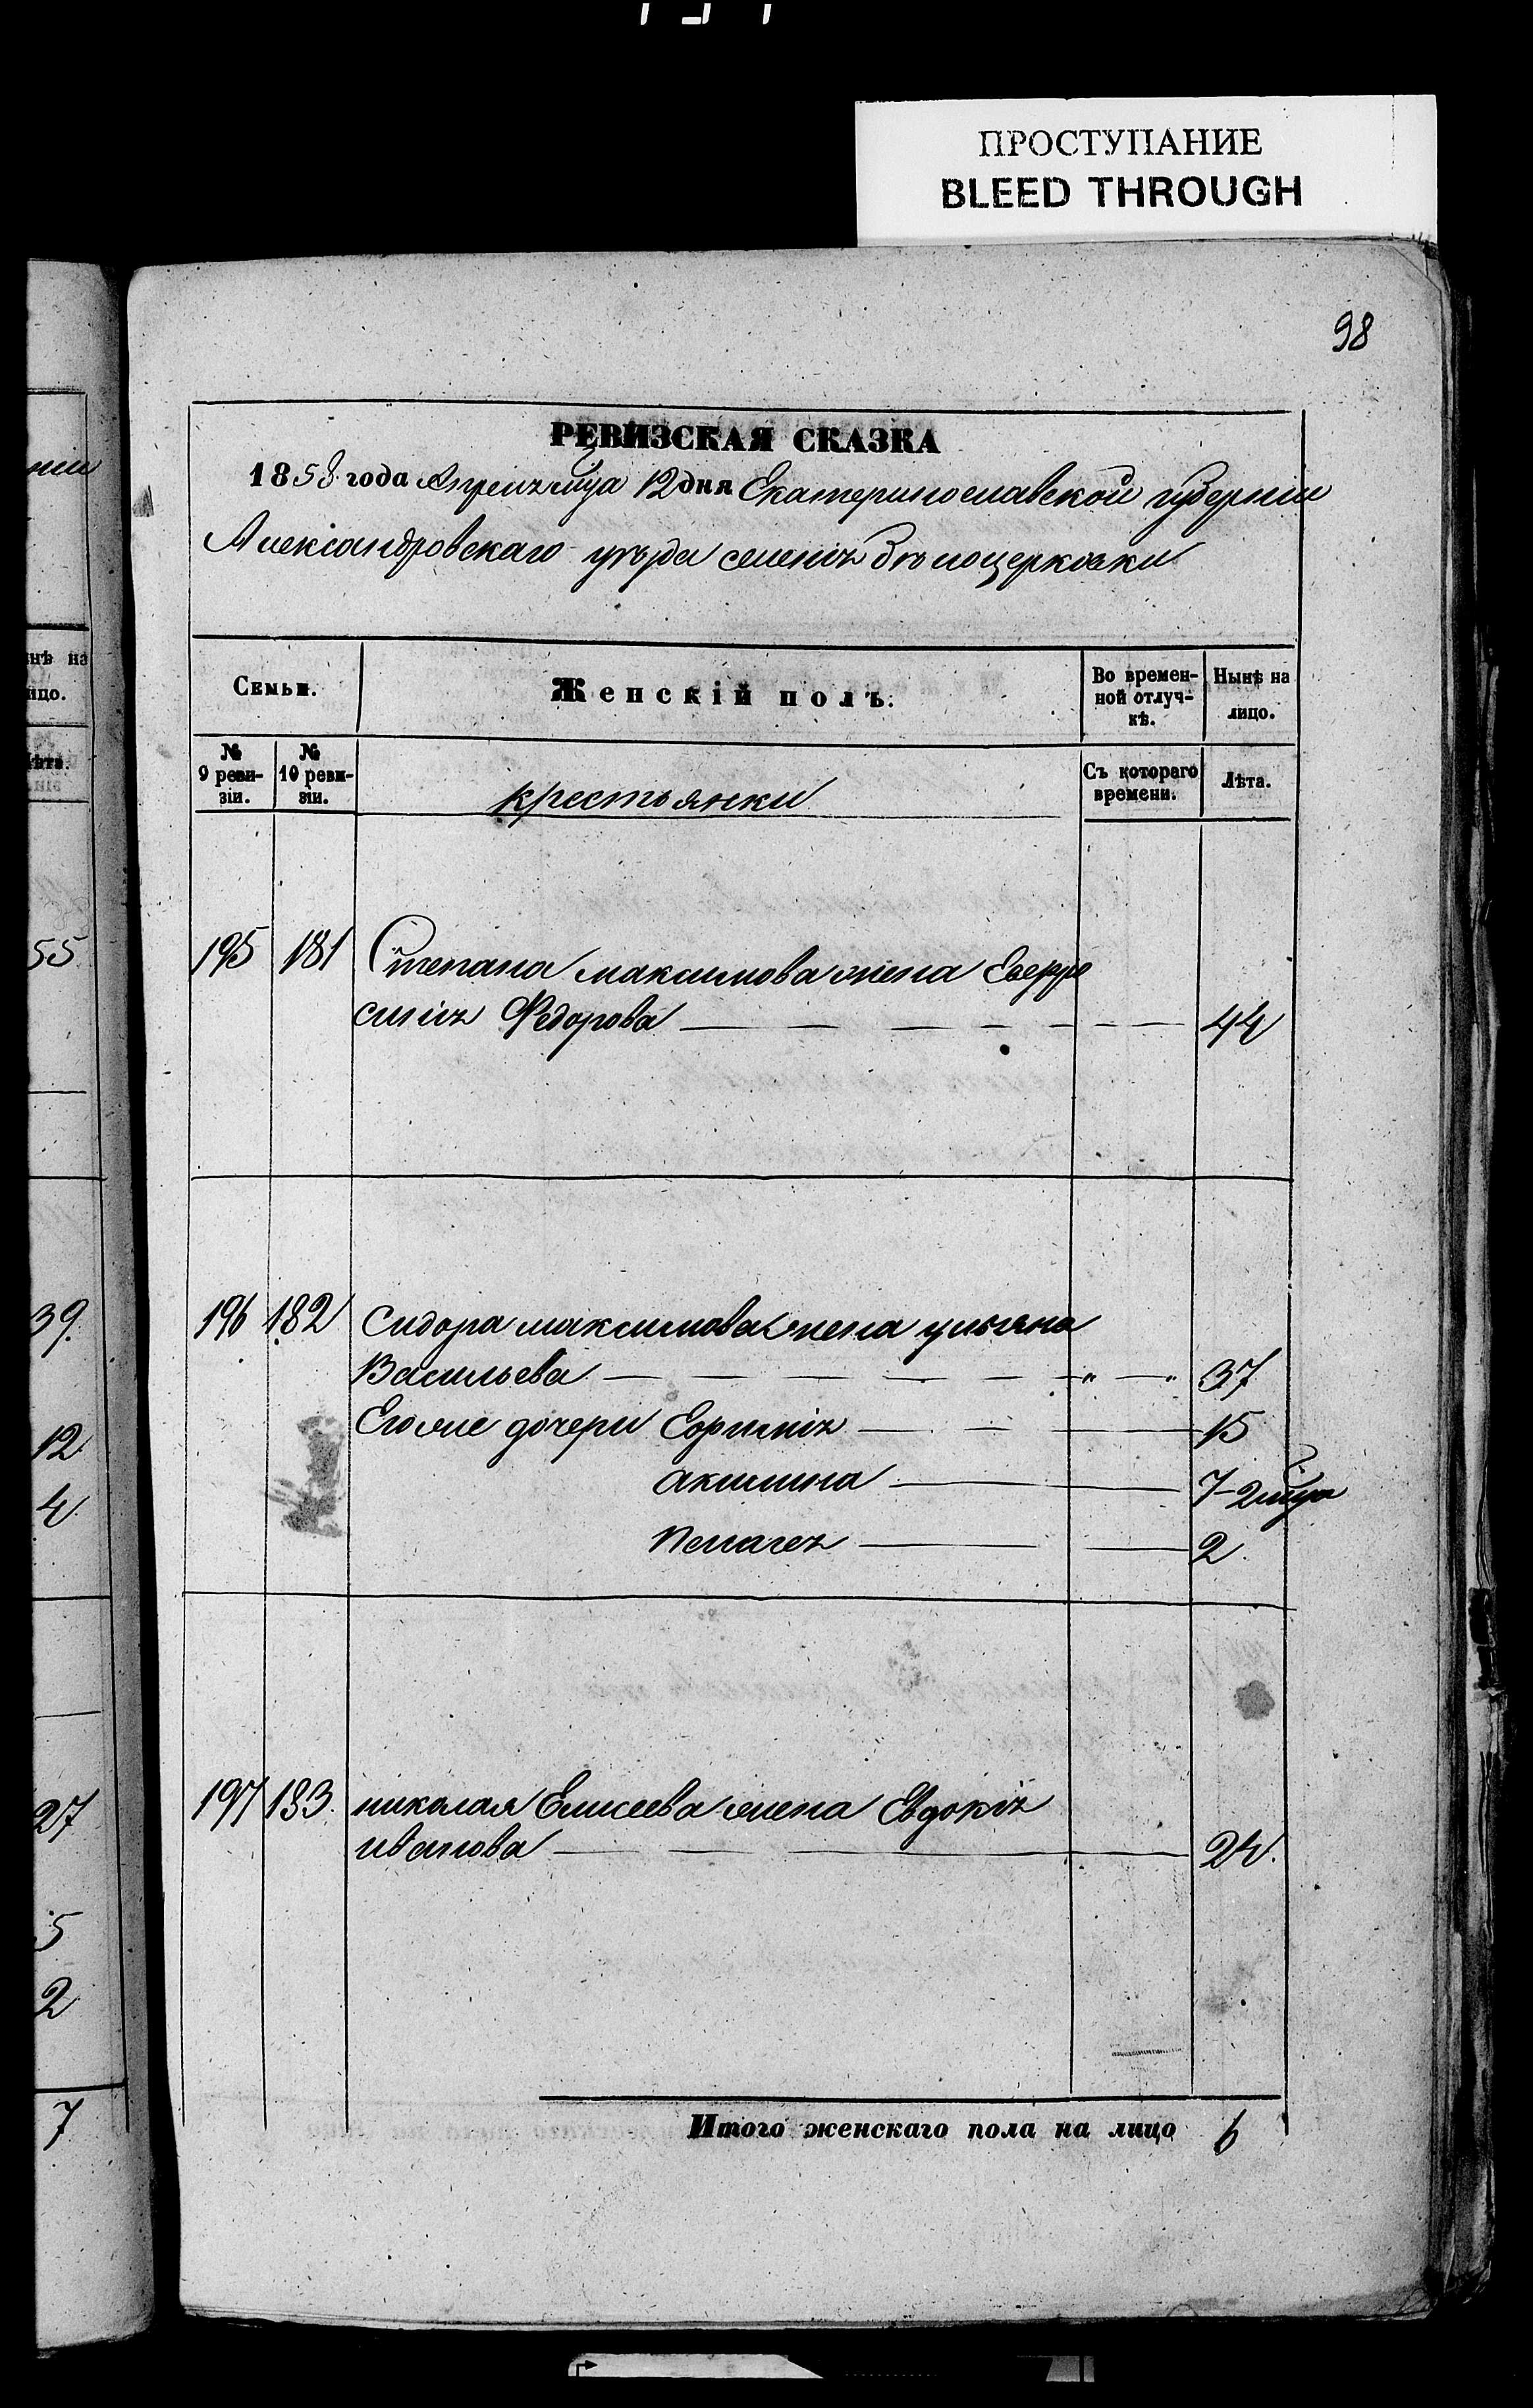 ПРОСТУПАНИЕ
BLEED THROUGH
98
РЕВИЗСКАЯ СКАЗКА
1858 года Апреля мца 12 дня Екатеринославской губернии
Александровскаго уѣзда селенія Бѣлоцерковки
Семьи.
Женскій полъ.
Во времен-
ной отлуч-
кѣ.
Нынѣ на
лицо.
№
9 реви-
зіи.
№
10 реви-
зіи.
крестьянки
Съ котораго
времени.
Лѣта.
195 181 Степана Максимова жена Евфро
синія Федорова 44
196 182 Сидора Максимова жена Ульяна
Васильева 37
Его же дочери Ефимія 15
Акилина 7-2 мца
Пелагея 2
197 183 Николая Елисеева жена Евдокія
Иванова 24.
Итого женскаго пола на лицо 6
нѣ на
ицо.
ѣта.
55
39.
12
4
27
5
2
7